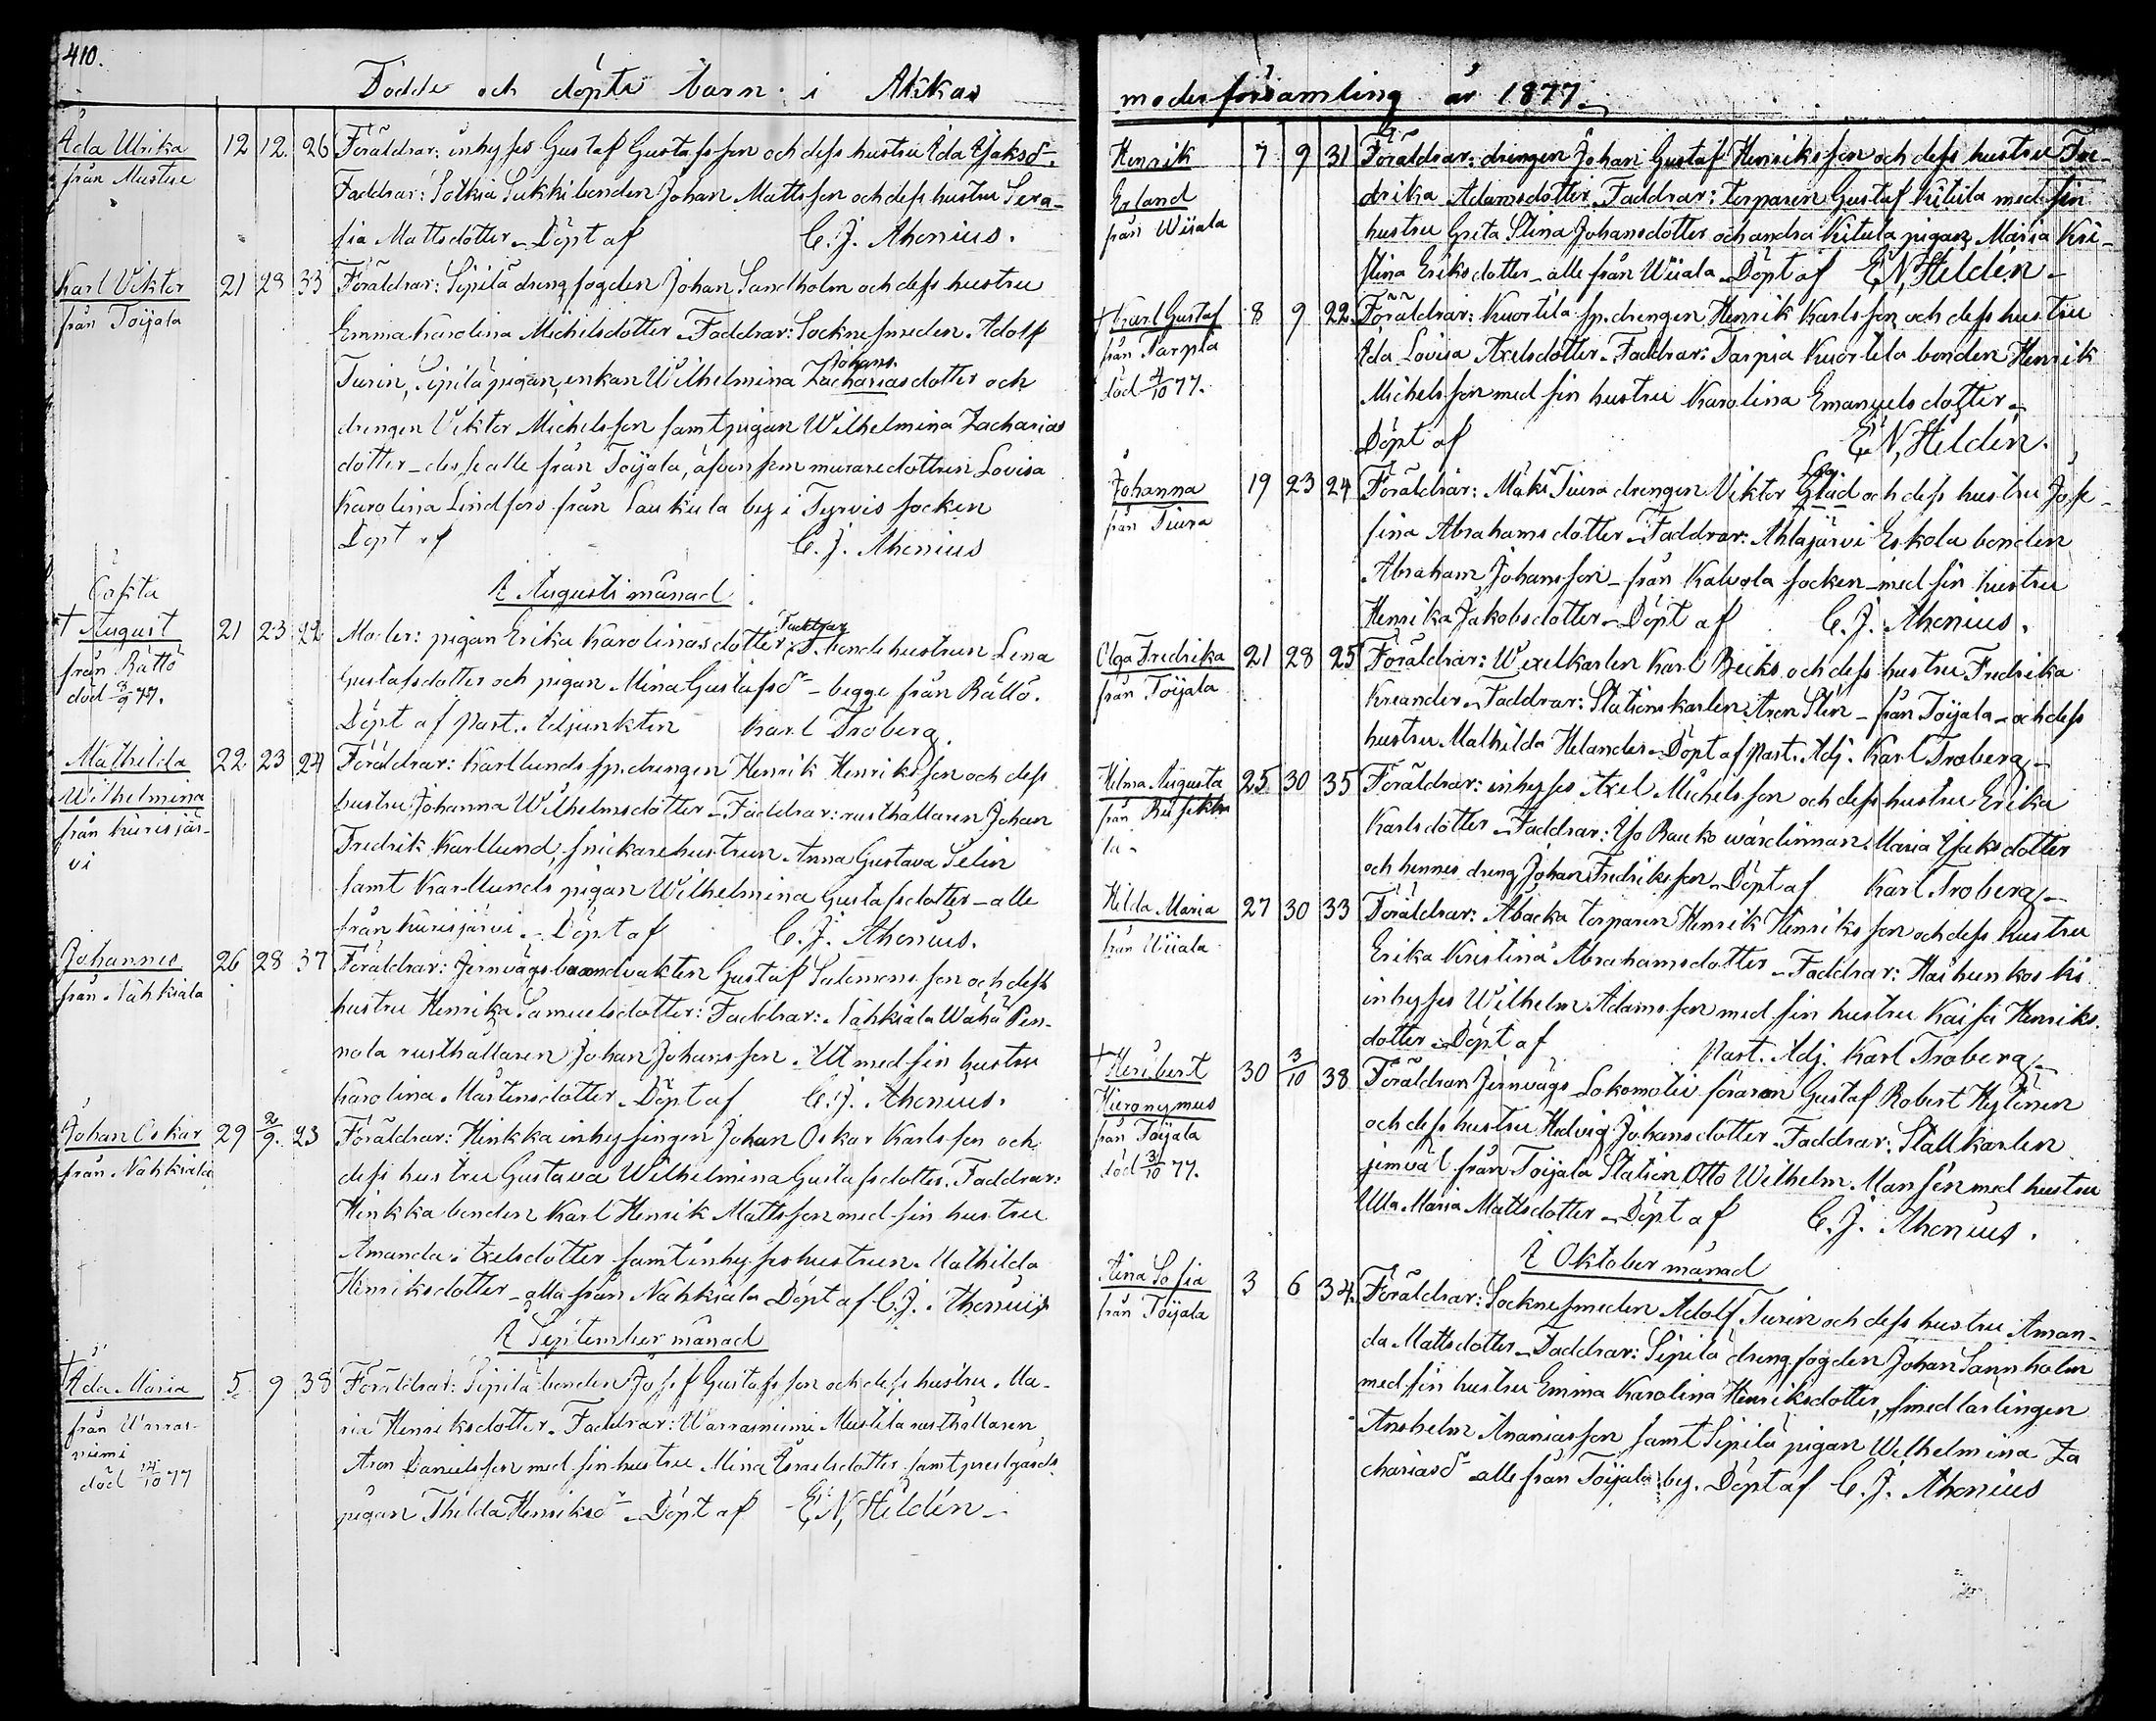 410.
Födde och döpte barn i Akkas
Åda Ulrika 12 12. 26 Föräldrar: inhyses Gustaf Gustafsson och dess hustru Eda Isaksdr.
från Mustue Faddrar: Sotkia Sukki bonden Johan Mattsson och dess hustru Sera-
fia Mattsdotter - Döpt af C. J. Ahonius.
Karl Viktor 21 28 33 Föräldrar: Sipilä drengfogden Johan Sandholm och dess hustru
från Toijala Emma Karolina Michelsdotter - Faddrar: Socknesmeden Adolf
Johans
Turin, Sipilä pigan, enkan Wilhelmina Zachariasdotter och
drengen Viktor Michelsson samt pigan Wilhelmina Zacharias
dotter - desse alle från Toijala, äfvensom muraredottren Lovisa
Karolina Lindfors från Laukula by i Tyrvis socken
Döpt af C. J. Ahonius
I Augusti månad
Oäkta
Faddrar
† August 21 23 22 Moder: pigan Erika Karolinasdotter, bondehustrun Lena
från Rättö Gustafsdotter och pigan Mina Gustafsdr - begge från Rättö.
död 3/9 77. Döpt af Past. Adjunkten Karl Troberg.
Mathilda 22 23 24 Föräldrar: Karllunds sp. drengen Henrik Henriksson och dess
Wilhelmina hustru Johanna Wilhelmsdotter - Faddrar: rusthållaren Johan
från Kurisjär- Fredrik Karllund, snickarehustrun Anna Gustava Selin
vi samt Karllunds pigan Wilhelmina Gustafsdotter - alle
från Kurisjärvi - Döpt af C. J. Ahonius.
Johannes 26 28 37 Föräldrar: Jernvägsbanvakten Gustaf Salomonsson och dess
från Nahkiala hustru Henrika Samuelsdotter: Faddrar: Nahkiala Wähä Pen-
nola rusthållaren Johan Johansson Ut med sin hustru
Karolina Mårtensdotter - Döpt af C. J. Ahonius.
Johan Oskar 29 2/9. 23 Föräldrar: Hinkka inhysingen Johan Oskar Karlsson och
från Nahkiala dess hustru Gustava Wilhelmina Gustafsdotter. Faddrar:
Hinkka bonden Karl Henrik Mattsson med sin hustru
Amanda Axelsdotter samt inhyseshustrun Mathilda
Henriksdotter - alla från Nahkiala Döpt af C. J. Ahonius
I September månad
† Åda Maria 5 9 38 Föräldrar: Sipilä bonden Josef Gustafsson och dess hustru Ma-
från Warras- ria Henriksdotter. Faddrar: Warrasniemi Mustila rusthållaren
niemi Aron Danielsson med sin hustru Mina Israelsdotter samt prestgårds
död 14/10 77 pigan Thilda Henriksdr - Döpt af E, N, Heldén -
moderförsamling år 1877.
Henrik 7 9 31 Föräldrar: drengen Johan Gustaf Henriksson och dess hustru Fre-
Erland drika Adamsdotter. Faddrar: torparen Gustaf Kitula med sin
från Wiiala hustru Greta Stina Johansdotter och andra Kitula pigan Maria Kri-
stina Eriksdotter - alle från Wiiala - Döpt af E, N, Heldén -
† Karl Gustaf 8 9 22 Föräldrar: Kuortila sp. drengen Henrik Karlsson och dess hustru
från Tarpia Eda Lovisa Axelsdotter. Faddrar: Tarpia Kuortila bonden Henrik
död 4/10 77. Michelsson med sin hustru Karolina Emanuelsdotter -
Döpt af E, N, Heldén.
Johanna 19 23 24 Föräldrar: Mäki Tiura drengen Viktor Glad och dess hustru Jose-
från Tiura fina Abrahamsdotter - Faddrar: Ahlajärvi Eskola bonden
Abraham Johansson - från Kalvola socken - med sin hustru
Henrika Jakobsdotter - Döpt af C. J. Ahonius.
Olga Fredrika 21 28 25 Föräldrar: Wexelkarlen Karl Becks och dess hustru Fredrika
från Toijala Kreander - Faddrar: Stationskarlen Aron Slen - från Toijala - och dess
hustru Mathilda Helander - Döpt af Past. Adj. Karl Troberg -
Helma Augusta 25 30 35 Föräldrar: inhyses Axel Michelsson och dess hustru Erika
från Karlsdotter - Faddrar: Yso Rauko wärdinnan Maria Isaksdotter
la - och hennes dreng Johan Fredriksson - Döpt af Karl Troberg -
Hilda Maria 27 30 33 Föräldrar: Abacka torparen Henrik Henriksson och dess hustru
från Wiiala Erika Kristina Abrahamsdotter - Faddrar: Haihunkoski
inhyses Wilhelm Adamsson med sin hustru Kaisa Henriks
dotter - Döpt af Past. Adj. Karl Troberg -
† Heribert 30 3/10 38 Föräldrar Jernvägs Lokomotiv föraren Gustaf Robert Hytönen
Hieronymus och dess hustru Hedvig Johansdotter. Faddrar: Stallkarlen
från Toijala jemväl från Toijala Station Otto Wilhelm Mansén med hustru
död 3/10 77. Ulla Maria Mattsdotter - Döpt af C. J. Ahonius.
I Oktober månad
Aina Sofia 3 6 34. Föräldrar: Socknesmeden Adolf Turin och dess hustru Aman-
från Toijala da Mattsdotter - Faddrar: Sipilä drengfogden Johan Sannholm
med sin hustru Emma Karolina Henriksdotter, smedlärlingen
Anshelm Ananiasson samt Sipilä pigan Wilhelmina Za
chariasdr - alle från Toijala by. Döpt af C. J. Ahonius